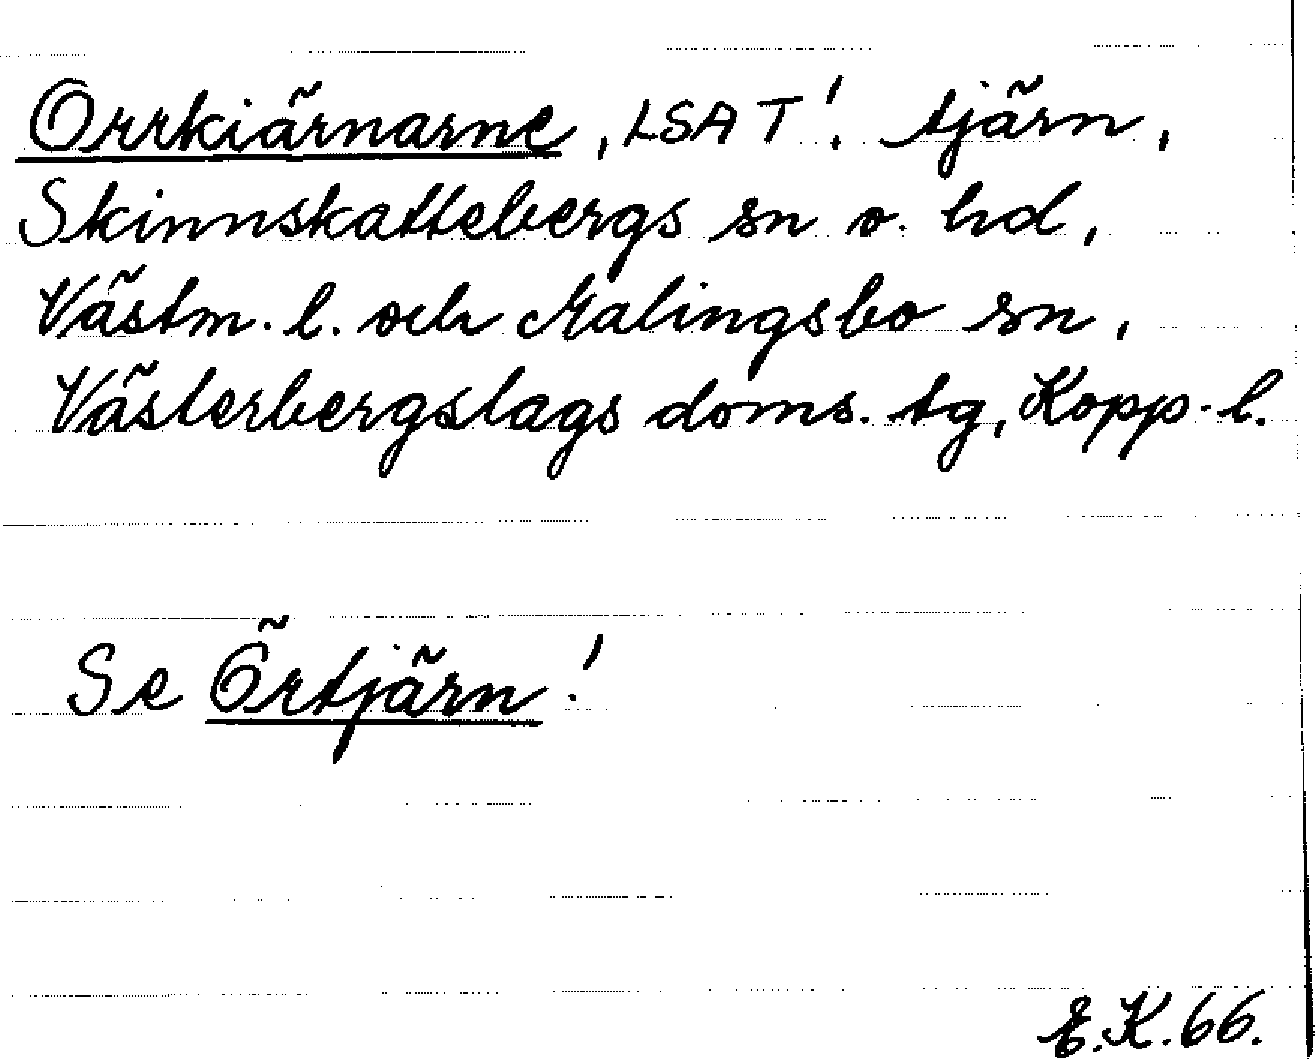 Orrkiärnarne, LSA T! tjärn,
Skinnskattebergs sn o. hd,
Västm. l. och Malingsbo sn,
Västerbergslags doms. tg, Kopp. l.
Se Örtjärn!
E.K. 66.